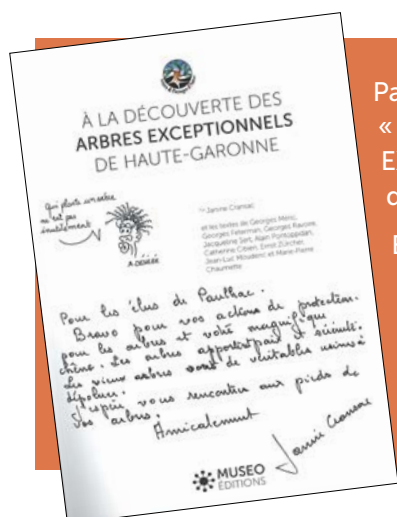 À LA DÉCOUVERTE DES
ARBRES EXCEPTIONNELS
DE HAUTE-GARONNE
Qui plante un arbre
ne vit pas
inutilement
A. DÉSIRÉE
Janine Cransac
et les textes de Georges Méric,
Georges Feterman, Georges Ravoire,
Jacqueline Sert, Alain Pontoppidan,
Catherine Cibien, Ernst Zürcher,
Jean-Luc Moudenc et Marie-Pierre
Chaumette
Pour les élus de Paulhac.
Bravo pour vos actions de protection
pour les arbres et votre magnifique
chêne. Les arbres apportent paix et sérénité.
Les vieux arbres sont de véritables usines à
dépolluer.
J'espère vous rencontrer aux pieds de
vos arbres.
Amicalement
Janine Cransac
MUSEO
ÉDITIONS
Pa
«
E